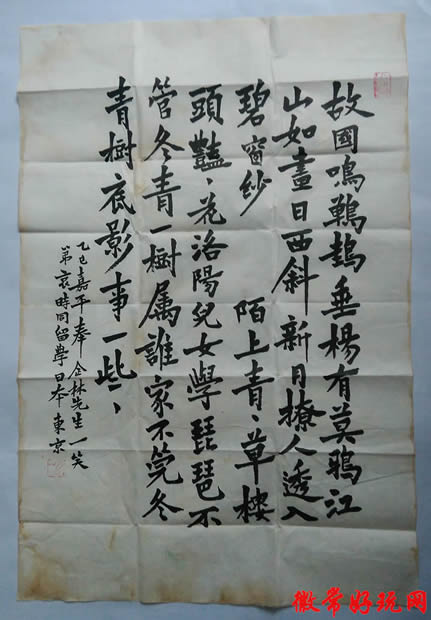 故國鳴垂楊有莫鴉江
山如畫日西斜新月撩人透入
碧窗紗 陌上青、草樓
頭豔、花洛陽兒女學琵琶不
管冬青一樹属誰家不筦冬
青樹底影事一些、
乙巳嘉平奉企林先生一笑
第哀時同留學日本東京
徽常好玩网